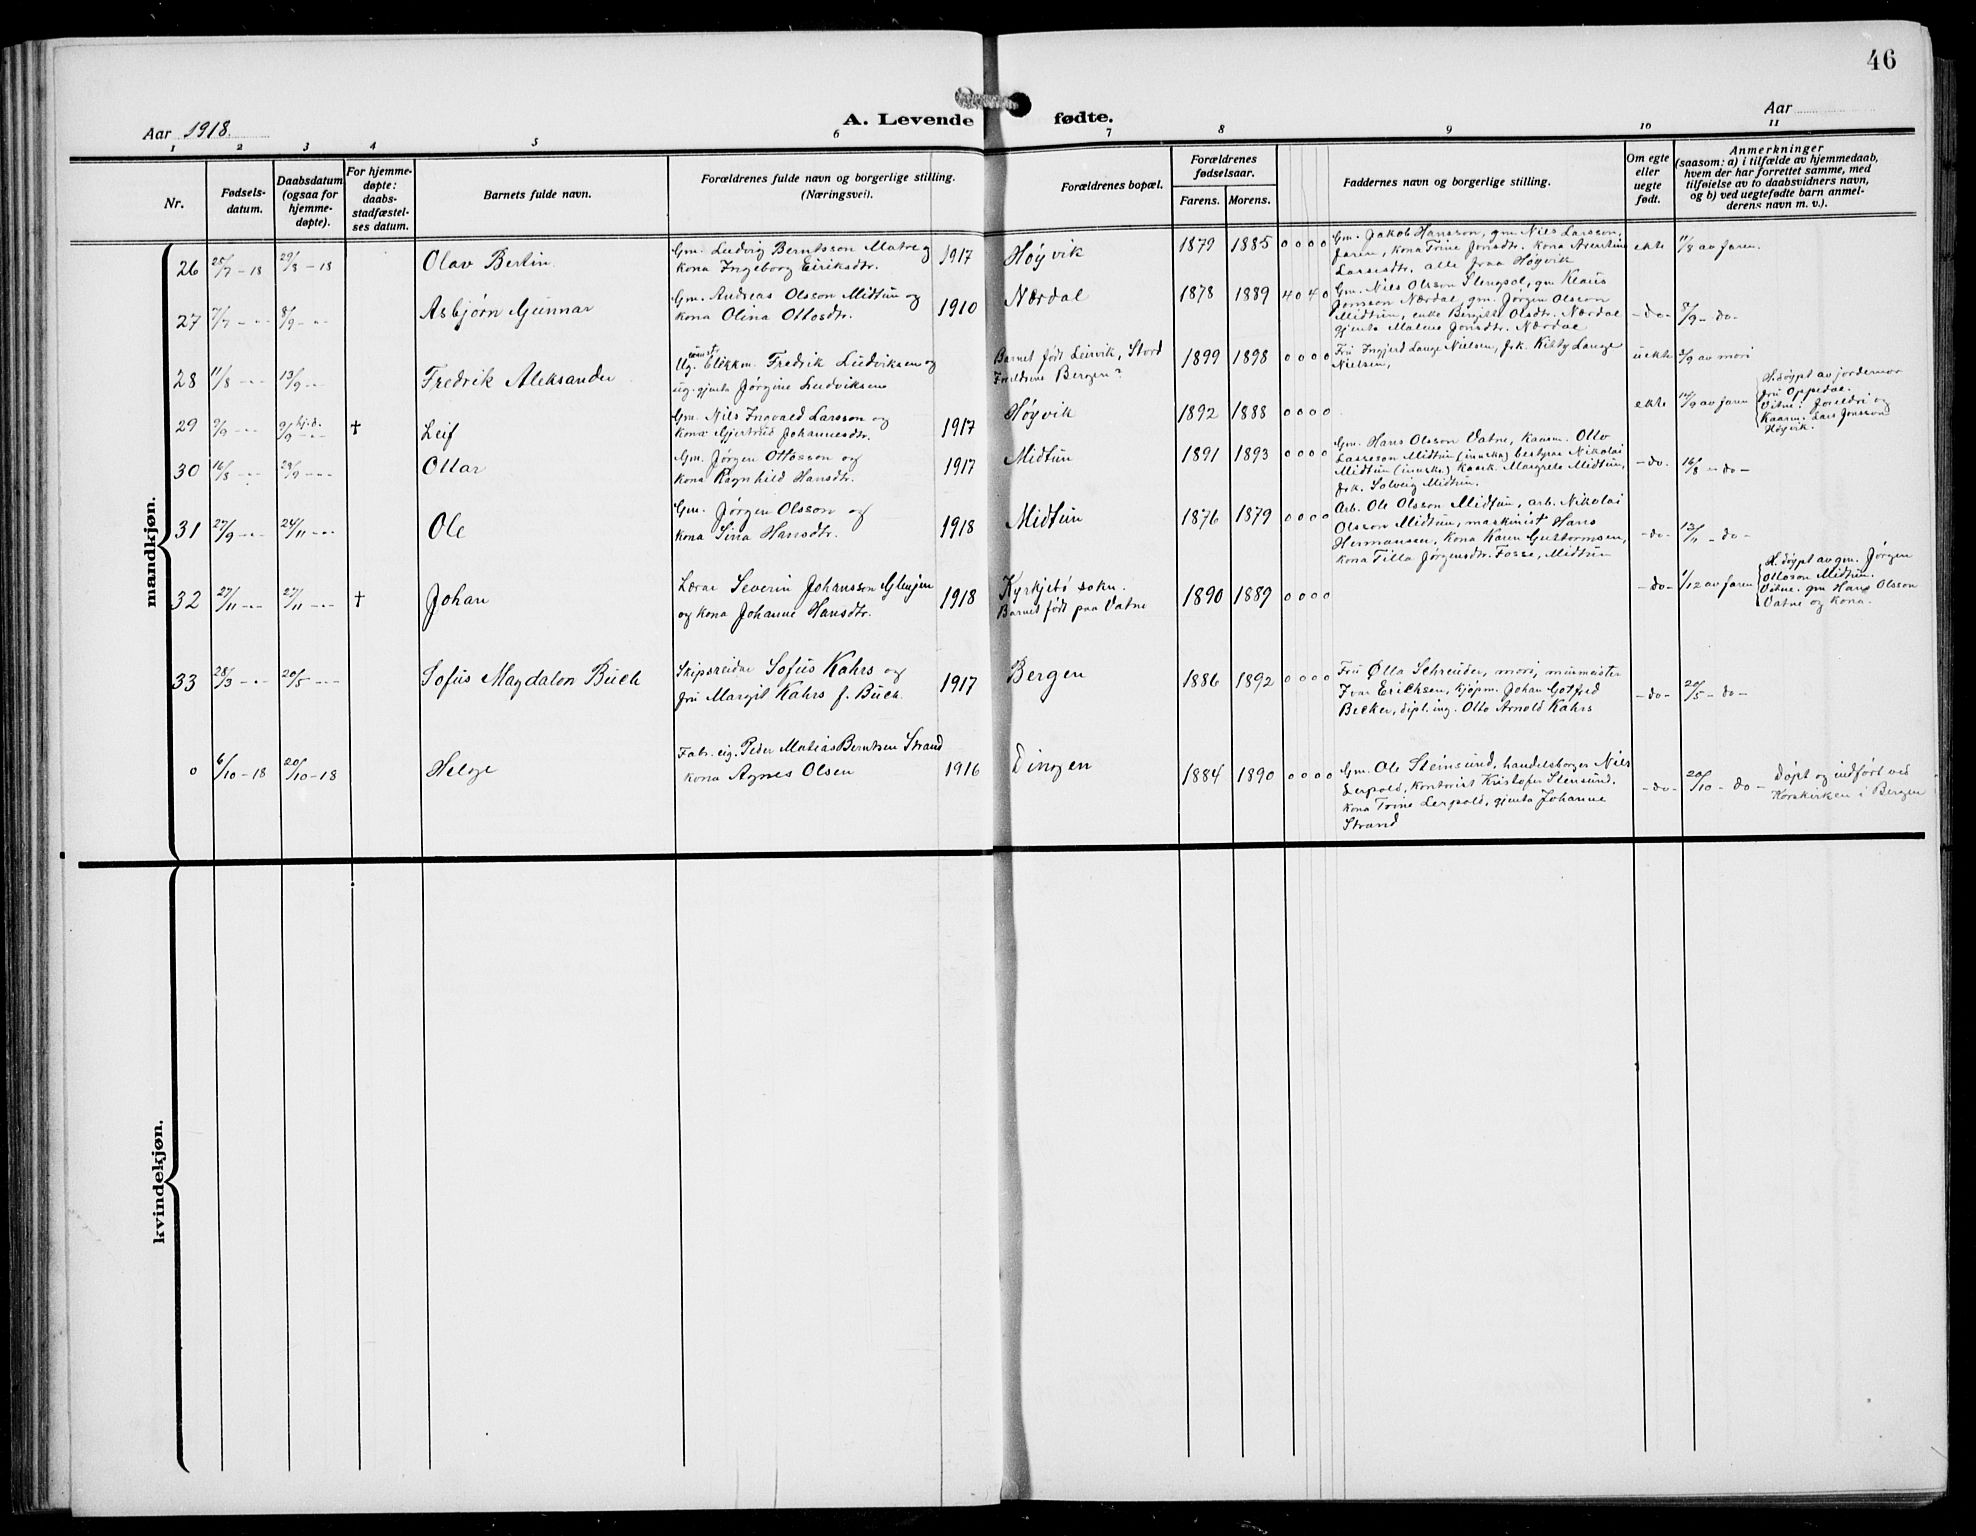 46
Aar 1918.
A. Levende fødte.
Aar
1 2 3 4 5 6 7 8 9 10 11
Nr.
Fødsels-
datum.
Daabsdatum
(ogsaa for
hjemme-
døpte).
For hjemme-
døpte:
daabs-
stadfæstel-
ses datum.
Barnets fulde navn.
Forældrenes fulde navn og borgerlige stilling.
(Næringsvei).
Forældrenes bopæl.
Forældrenes
fødselsaar.
Farens. Morens.
Faddernes navn og borgerlige stilling.
Om egte
eller
uegte
født.
Anmerkninger
(saasom: a) i tilfælde av hjemmedaab,
hvem der har forrettet samme, med
tilføielse av to daabsvidners navn,
og b) ved uegtefødte barn anmel-
derens navn m. v.).
mandkjøn.
26 25/7-18 29/8-18
Olav Bertin
Gm. Ludvig Berntsson Matre og
kona Ingeborg Eiriksdtr.
1917
Høyvik
1879 1885 0 0 0 0
Gm. Jakob Hansson, gm. Nils Larsson,
faren, kona Trine Jonsdtr. kona
Larsesdtr. alle fraa Høyvik
ekte
11/8 av faren.
27 7/7 - - 8/9 - -
Asbjørn Gunnar
Gm. Andreas Olsson Midtun og
kona Olina Ottosdtr.
1910
Nærdal
1878 1889 4 0 4 0
Gm. Nils Olsson Stengsol, gm Klaus
Jonsson Nærdal, gm. Jørgen Olsson
Midtun, enke Bergitte Olsdtr. Nærdal
gjenta Malene Jonsdtr. Nærdal
- do - 8/9 - do -
28 11/8 - - 13/9 - -
Fredrik Aleksander
Ug. Blikkm. Fredrik Ludviksen og
ug. gjenta Jørgine Ludviksen
Barnet født Leirvik, Stord
Foreldrene Bergen?
1899 1898 0 0 0 0
Fru Ingjerd Lange Nielsen, frk. Kitty Lange
Nielsen,
uekte 3/9 av mori
29 9/9 - - 9/9 hj.d. †
Leif
Gm. Nils Ingvald Larsson og
kona Gjertrud Johannesdtr.
1917
Høyvik
1892 1888 0 0 0 0
ekte 14/9 av faren
H. døypt av jordemor
fru Oppedal.
Vitne: foreldri og
Kaarm. Lars Jonsson
Høyvik.
30 16/8 - - 28/9 - -
Ottar
Gm. Jørgen Ottosson og
kona Ragnhild Hansdtr.
1917
Midtun
1891 1893 0 0 0 0
Gm. Hans Olsson Vatne, kaarm. Otto
Lasseson Midtun (innsk.) bestyrar Nikolai
Midtun (innsk.) kaark. Margrete Midtun,
frk. Solveig Midtun.
- do - 16/8 - do -
31 27/9 - - 24/11 - -
Ole
Gm. Jørgen Olsson og
kona Sina Hansdtr.
1918
Midtun
1876 1879 0 0 0 0
Arb. Ole Olsson Midtun, arb. Nikolai
Olsson Midtun, maskinist Hans
Hermansen, kona Karen Gustormsen,
kona Tilla Jørgensdtr. Fosse, Midtun
- do - 12/11 - do -
32 27/11 - - 27/11 - - †
Johan
Lærar Severin Johansson Glenjen
og kona Johanne Hansdtr.
1918
Kyrkjebø sokn.
Barnet født paa Vatne
1890 1889 0 0 0 0
- do - 1/12 av faren
H. døypt av gm. Jørgen
Ottoson Midtun.
Vitne: gm Hans Olsson
Vatne og kona.
33 28/3 - - 20/5 - -
Sofus Magdalon Buch
Skipsreidar Sofus Kahrs og
fru Margit Kahrs f. Buch.
1917
Bergen
1886 1892 0 0 0 0
Fru Otta Schreuder, mori, murmeister
Ivar Erichsen, kjøpm. Johan Gotfred
Becker, dipl. ing. Otto Arnold Kahrs
- do - 20/5 - do -
0 6/10-18 20/10-18
Helge
Fab. eig. Peder Matias Berntsen Strand
kona Agnes Olsen
1916
Dingen
1884 1890 0 0 0 0
Gm. Ole Steinsund, handelsborger Nils
Lerpold, kontorist Kristofer Stensund,
kona Trine Lerpold, gjenta Johanne
Strand
- do - 20/10 - do -
Døpt og indført ved
Korskirken i Bergen
kvindekjøn.